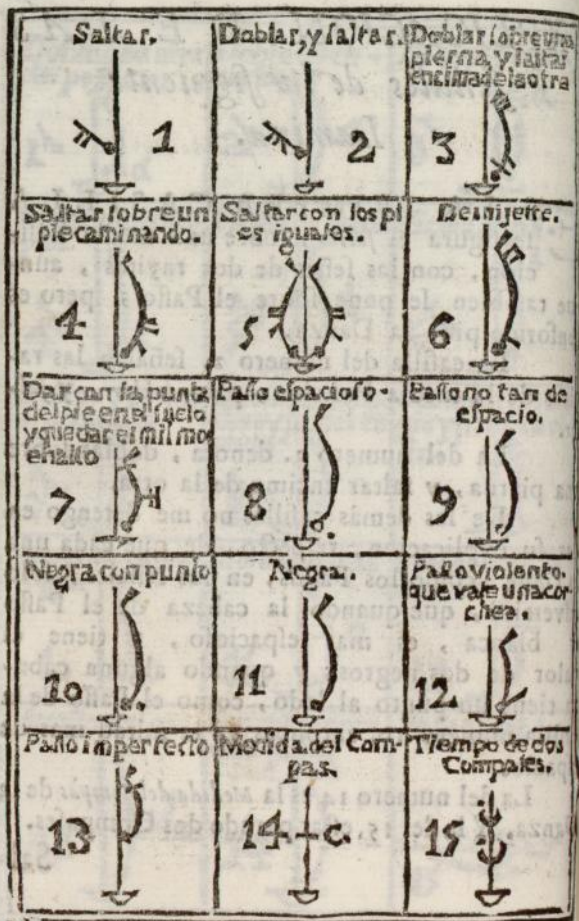 Saltar.
1
Doblar, y ſaltar.
2
Doblar ſobre una
pierna, y ſaltar
encima de la otra
3
Saltar ſobre un
pie caminando.
4
Saltar con los pi
es iguales.
5
Demijette.
6
Dar con la punta
del pie en el ſuelo
y quedar el miſmo
en alto
7
Paſſo eſpacioſo.
8
Paſſo no tan de
eſpacio.
9
Negra con punto
10
Negra.
11
Paſſo violento.
que vale una cor
chea.
12
Paſſo imperfecto
13
Medida del Com-
pas.
14 C.
Tiempo de dos
Compaſes.
15